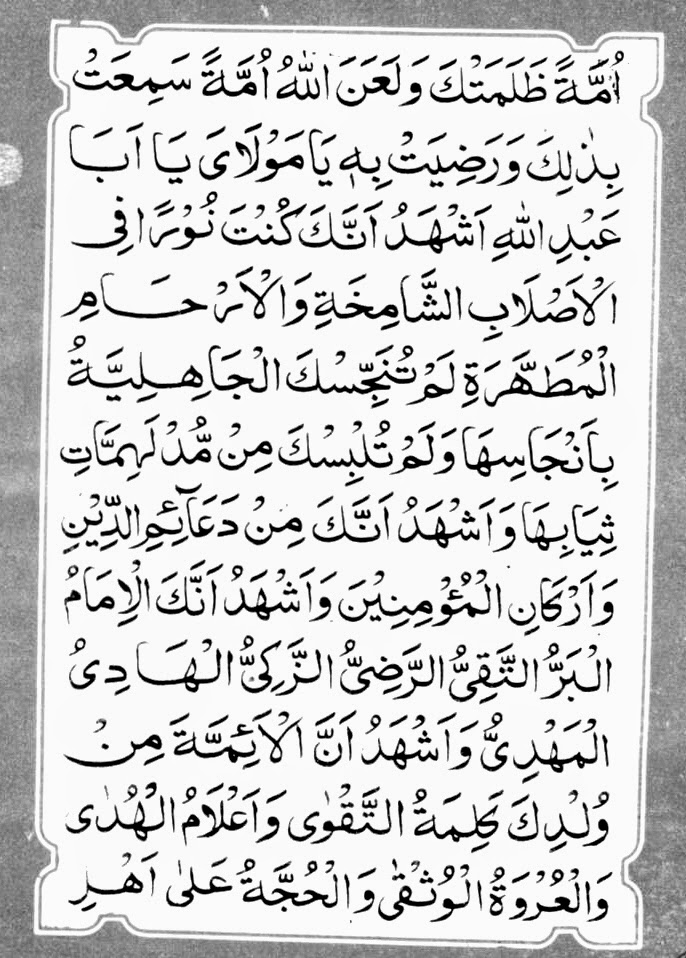 اُمَّةً ظَلَمَتْكَ وَلَعَنَ اللّٰهُ اُمَّةً سَمِعَتْ
بِذٰلِكَ وَرَضِيَتْ بِهٖ يَا مَوْلَايَ يَا اَبَا
عَبْدِ اللّٰهِ اَشْهَدُ اَنَّكَ كُنْتَ نُوْرًا فِى
الْاَصْلَابِ الشَّامِخَةِ وَالْاَرْحَامِ
الْمُطَهَّرَةِ لَمْ تُنَجِّسْكَ الْجَاهِلِيَّةُ
بِاَنْجَاسِهَا وَلَمْ تُلْبِسْكَ مِنْ مُّدْلَهِمَّاتِ
ثِيَابِهَا وَاَشْهَدُ اَنَّكَ مِنْ دَعَآئِمِ الدِّيْنِ
وَاَرْكَانِ الْمُؤْمِنِيْنَ وَاَشْهَدُ اَنَّكَ الْاِمَامُ
الْبَرُّ التَّقِىُّ الرَّضِىُّ الزَّكِىُّ الْهَادِىُ
الْمَهْدِىُّ وَاَشْهَدُ اَنَّ الْاَئِمَّةَ مِنْ
وُلْدِكَ كَلِمَةُ التَّقْوٰى وَاَعْلَامُ الْهُدٰى
وَالْعُرْوَةُ الْوُثْقٰى وَالْحُجَّةُ عَلٰى اَهْلِ